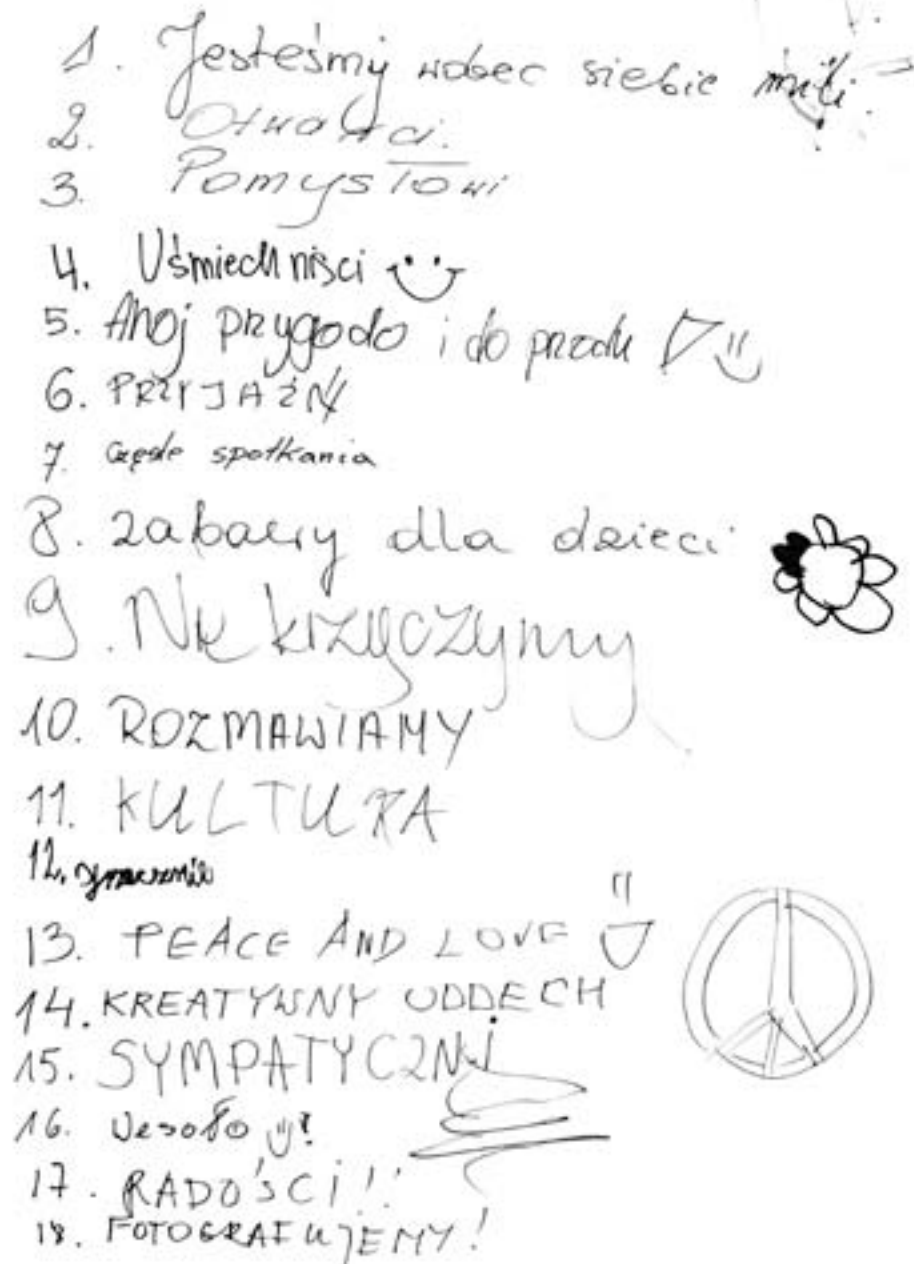 1. Jesteśmy wobec siebie mili
2. Otwarci.
3. Pomysłowi
4. Uśmiechnięci
5. Ahoj przygodo i do przodu
6. PRZYJAŹŃ
7. Częste spotkania
8. zabawy dla dzieci
9. Nie krzyczymy
10. ROZMAWIAMY
11. KULTURA
12.
13. PEACE AND LOVE
14. KREATYWNY ODDECH
15. SYMPATYCZNI
16. Wesoło !
17. RADOŚCI!!
18. FOTOGRAFUJEMY!